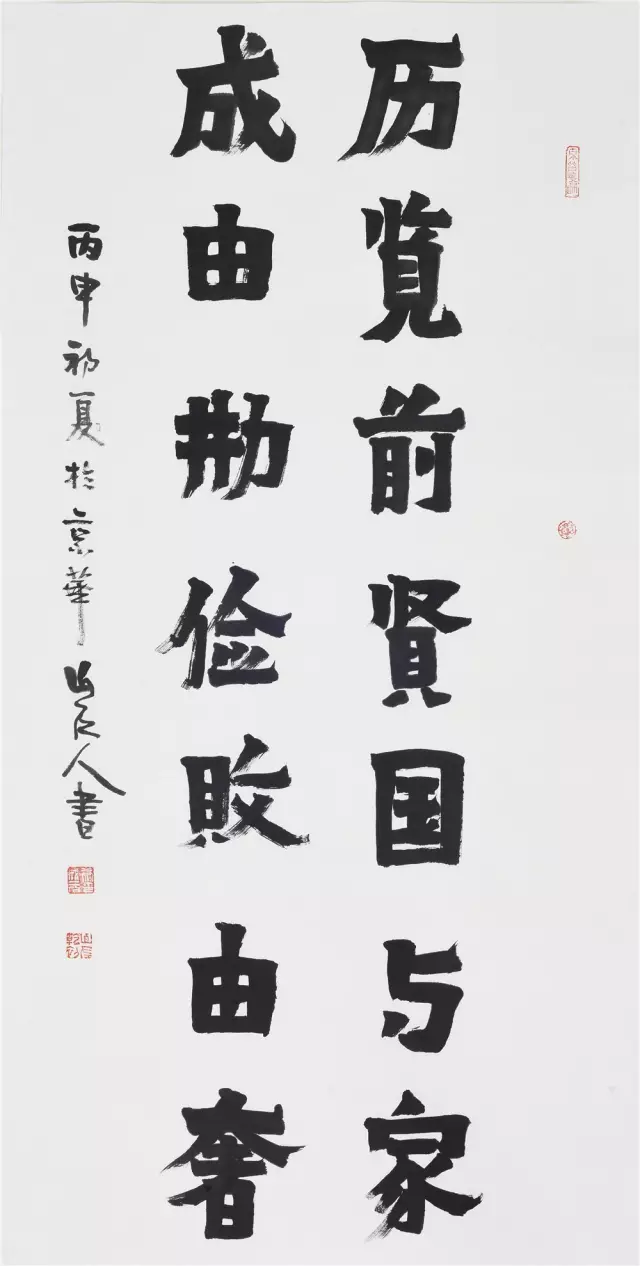 历览前贤国与家
成由勤俭敗由奢
丙申初夏於京華山人書